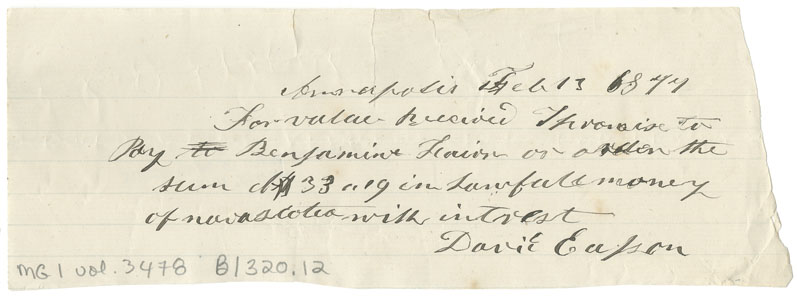 Annapolis Feb 13 1877
For value Received I promise to
Pay to Benjamine or order the
sum of $33.19 in Lawfull money
of novascotea with intrest
David Easson
MG1 vol. 3478 B/320.12